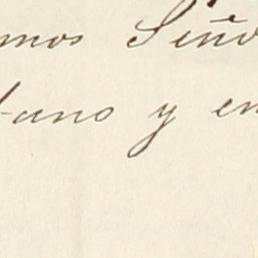 mos Seño
tano y en